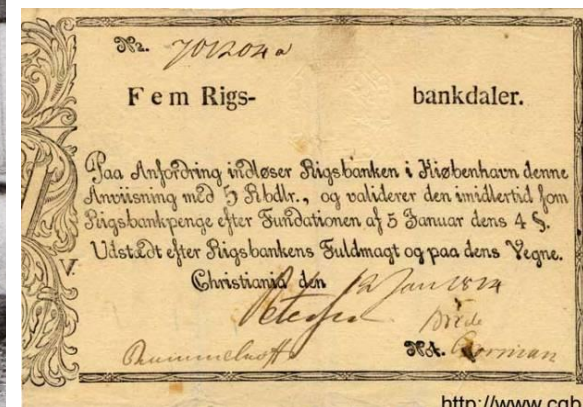 No. 701204 a
Fem Rigs- bankdaler.
Paa Anfordring indløser Rigsbanken i Kiøbenhavn denne
Anviisning med 5 Rbdlr., og validerer den imidlertid som
Rigsbankpenge efter Fundationen af 5 Januar dens 4 §.
Udstædt efter Rigsbankens Fuldmagt og paa dens Vegne.
V.
Christiania den 12 Jan 1814
Not.
http://www.cgb